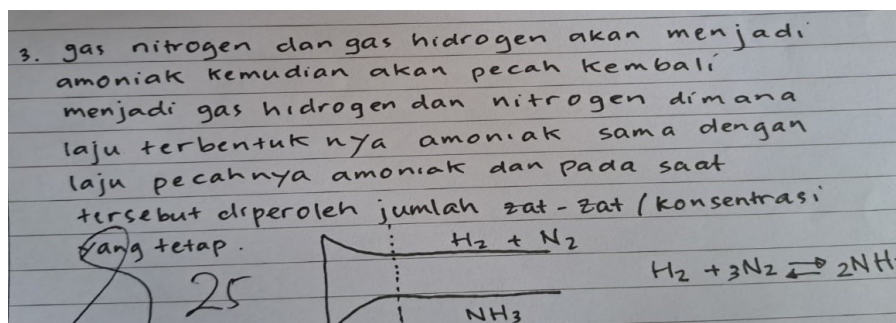 3. gas nitrogen dan gas hidrogen akan menjadi
amoniak kemudian akan pecah kembali
menjadi gas hidrogen dan nitrogen dimana
laju terbentuk nya amoniak sama dengan
laju pecahnya amoniak dan pada saat
tersebut diperoleh jumlah zat-zat / konsentrasi
yang tetap.
H₂ + N₂
H₂ + 3N₂ ⇌ 2NH
25
NH₃